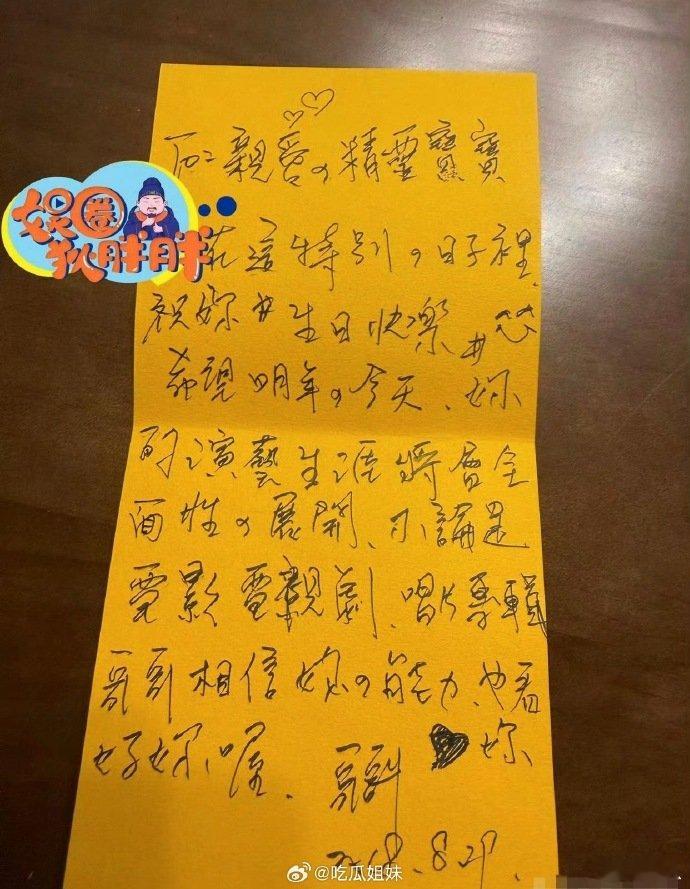 親愛の精靈寶寶
娛圈
狄胖胖
在這特別の日子裡、
祝妳#生日快樂#
希望明年の今天、妳
的演藝生涯將會全
面性の展開、不論是
電影電視劇、唱片專輯
哥哥相信妳の能力、也看
好妳、喔、哥哥 妳
2018.8.29.
@吃瓜姐妹